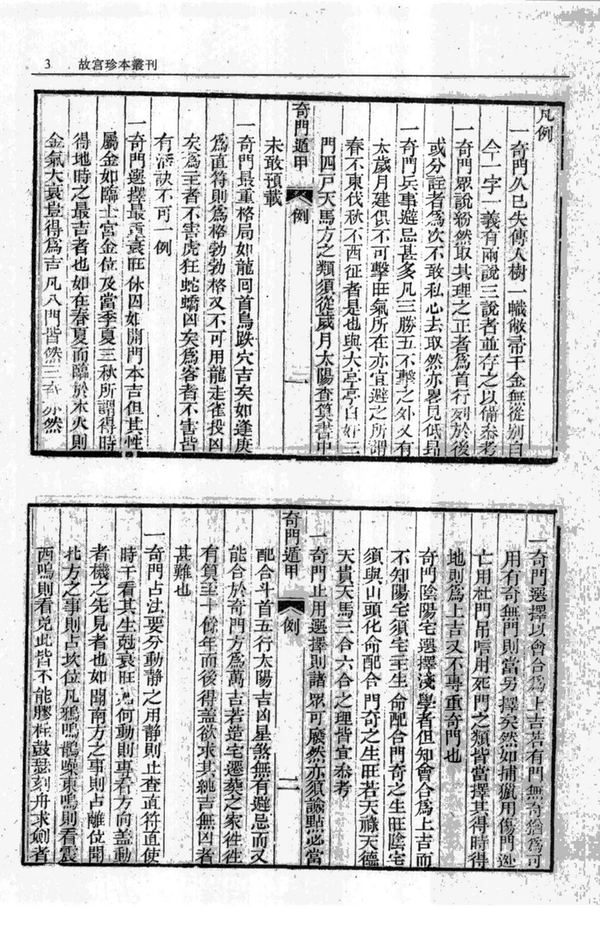 3 故宮珍本叢刊
凡例
一奇門久已失傳人樹一幟敝帚千金無從別白
今一字一義有兩說三說者並存之以備參考
一奇門眾說紛然取其理之正者爲首行刻於後
或分註者爲次不敢私心去取然亦畧見低昻
一奇門兵事避忌甚多凡三勝五不擊之外又有
太歲月建俱不可擊旺氣所在亦宜避之所謂
春不東伐秋不西征者是也與大亭亭白奸三
門四戸天馬方之類須從歲月太陽查算書中
奇門遁甲 凡例 二
未敢預載
一奇門最重格局如龍囘首鳥跌穴吉矣如逢庚
爲直符則爲格勃勃格又不可用龍走雀投凶
矣爲主者不害虎狂蛇蟜凶矣爲客者不害皆
有活訣不可一例
一奇門選擇最重衰旺休囚如開門本吉但其性
屬金如臨土宮金位及當季夏三秋所謂得時
得地時之最吉者也如在春夏而臨於木火則
金氣大衰豈得爲吉凡八門皆然三奇亦然
一奇門選擇以會合爲上吉若有門無奇猶爲可
用有奇無門則當另擇矣然如捕獵用傷門逃
亡用杜門吊唁用死門之類皆當擇其得時得
地則爲上吉又不專重奇門也
奇門陰陽宅選擇淺學者但知會合爲上吉而
不知陽宅須宅主生命配合門奇之生旺陰宅
須與山頭化命配合門奇之生旺若天祿天德
天貴天馬三合六合之理皆宜參考
一奇門止用選擇則諸眾可廢然亦須論㸃必當
奇門遁甲 凡例 二
配合斗首五行太陽吉凶星煞無有避忌而又
能合於奇門方爲萬吉若造宅遷葬之家徃徃
有算至十餘年而後得蓋欲求其純吉無凶者
甚難也
一奇門占法要分動静之用静則止查直符直使
時干看其生剋衰旺何如動則專看方向蓋動
者機之先見者也如聞南方之事則占離位聞
北方之事則占坎位凡鴉鳴鵲噪東鳴則看震
西鳴則看兌此皆不能膠柱鼓瑟刻舟求劍者